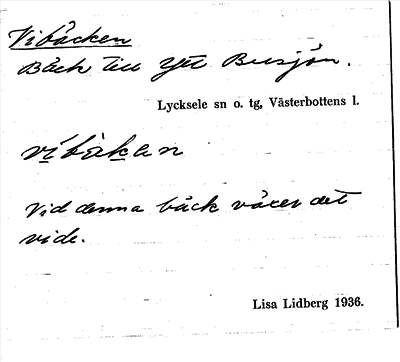 Vibäcken
Bäck till Ytt Busjön.
Lycksele sn o. tg, Västerbottens l.
vibäkan
Vid denna bäck växer det
vide.
Lisa Lidberg 1936.